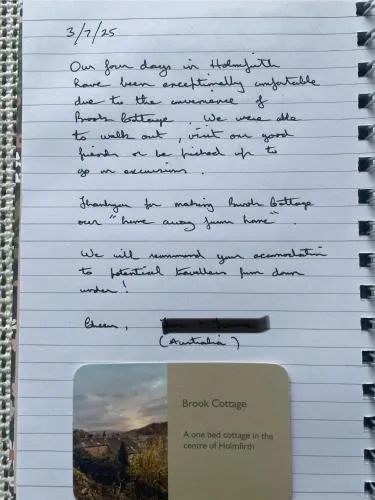 3/7/25
Our four days in Holmfirth
have been exceptionally comfortable
due to the convenience of
Brook Cottage. We were able
to walk out, visit our good
friends or be picked up to
go on excursions.
Thankyou for making Brook Cottage
our "home away from home".
We will recommend your accomodation
to potential travellers from down
under!
Cheers,
(Australia)
Brook Cottage
A one bed cottage in the
centre of Holmfirth